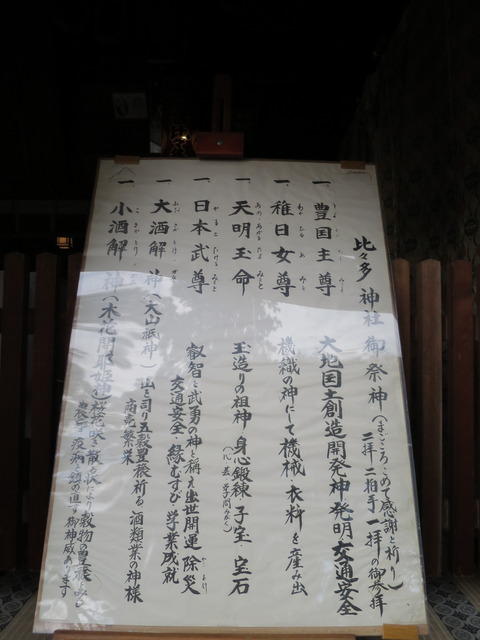 比々多神社御祭神(まごころこめて感謝と祈り)
二拝 二拍手 一拝の御参拝
一、豊国主尊 大地国土創造開発神発明交通安全
一、稚日女尊 機織の神にて機械・衣料を産み出
一、天明玉命 玉造りの祖神 身心鍛練 子宝 宝石
一、日本武尊 叡智と武勇の神と称え出世開運 除災
交通安全・縁むすび 学業成就
一、大酒解神(大山祇神)山を司り五穀豊穣祈る酒類業の神様
商売繁栄
一、小酒解神(木花開耶姫神)桜花咲き散る状により穀物の豊穣
疫病を鎮め遣す御神威あります